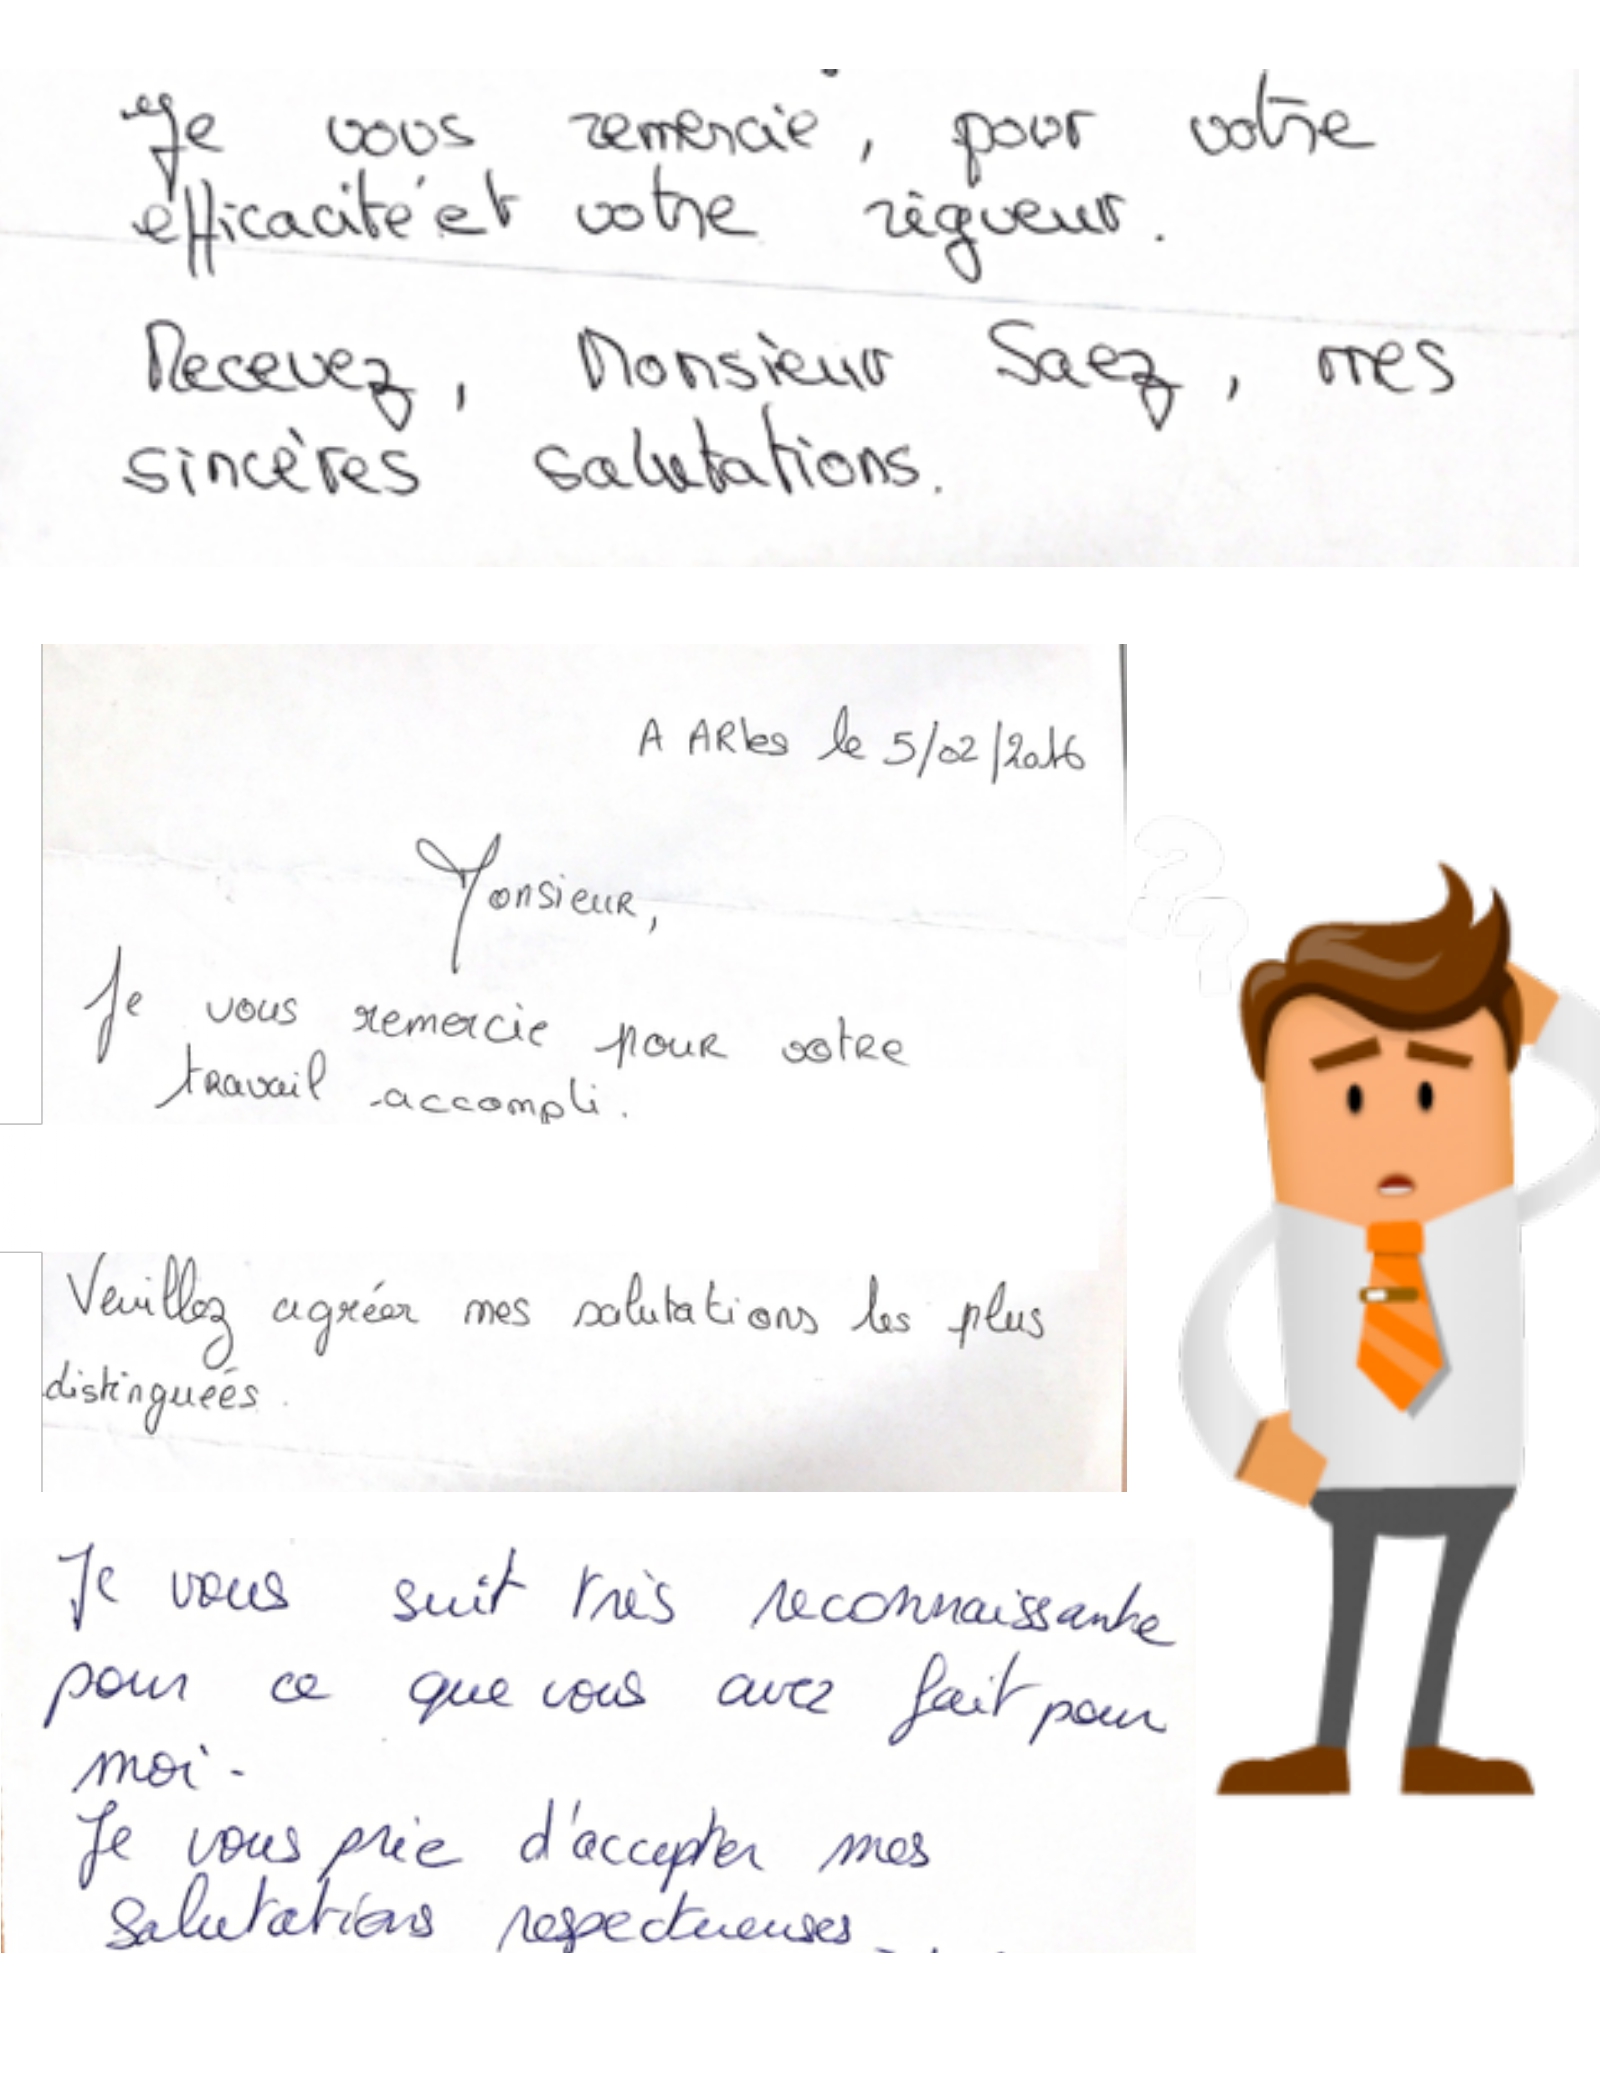 Je vous remercie, pour votre
efficacité et votre rigueur.
Recevez, Monsieur Saez, mes
sincères salutations.
A ARles le 5/02/2016
Monsieur,
Je vous remercie pour votre
travail accompli.
Veuillez agréer mes salutations les plus
distinguées.
Je vous suit très reconnaissante
pour ce que vous avez fait pour
moi.
Je vous prie d'accepter mes
salutations respectueuses
??